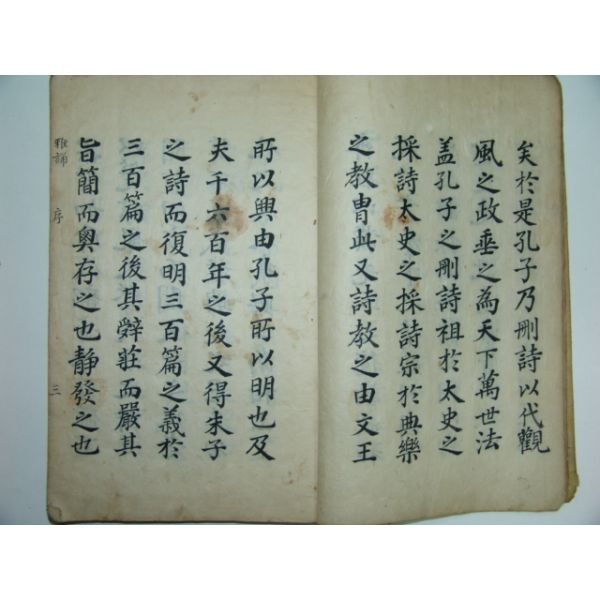 矣於是孔子乃刪詩以代觀
風之政垂之為天下萬世法
盖孔子之刪詩祖於太史之
採詩太史之採詩宗於典樂
之教胄此又詩教之由文王
所以興由孔子所以明也及
夫千六百年之後又得朱子
之詩而復明三百篇之義於
三百篇之後其辭莊而嚴其
旨簡而奧存之也靜發之也
雅誦 序 三